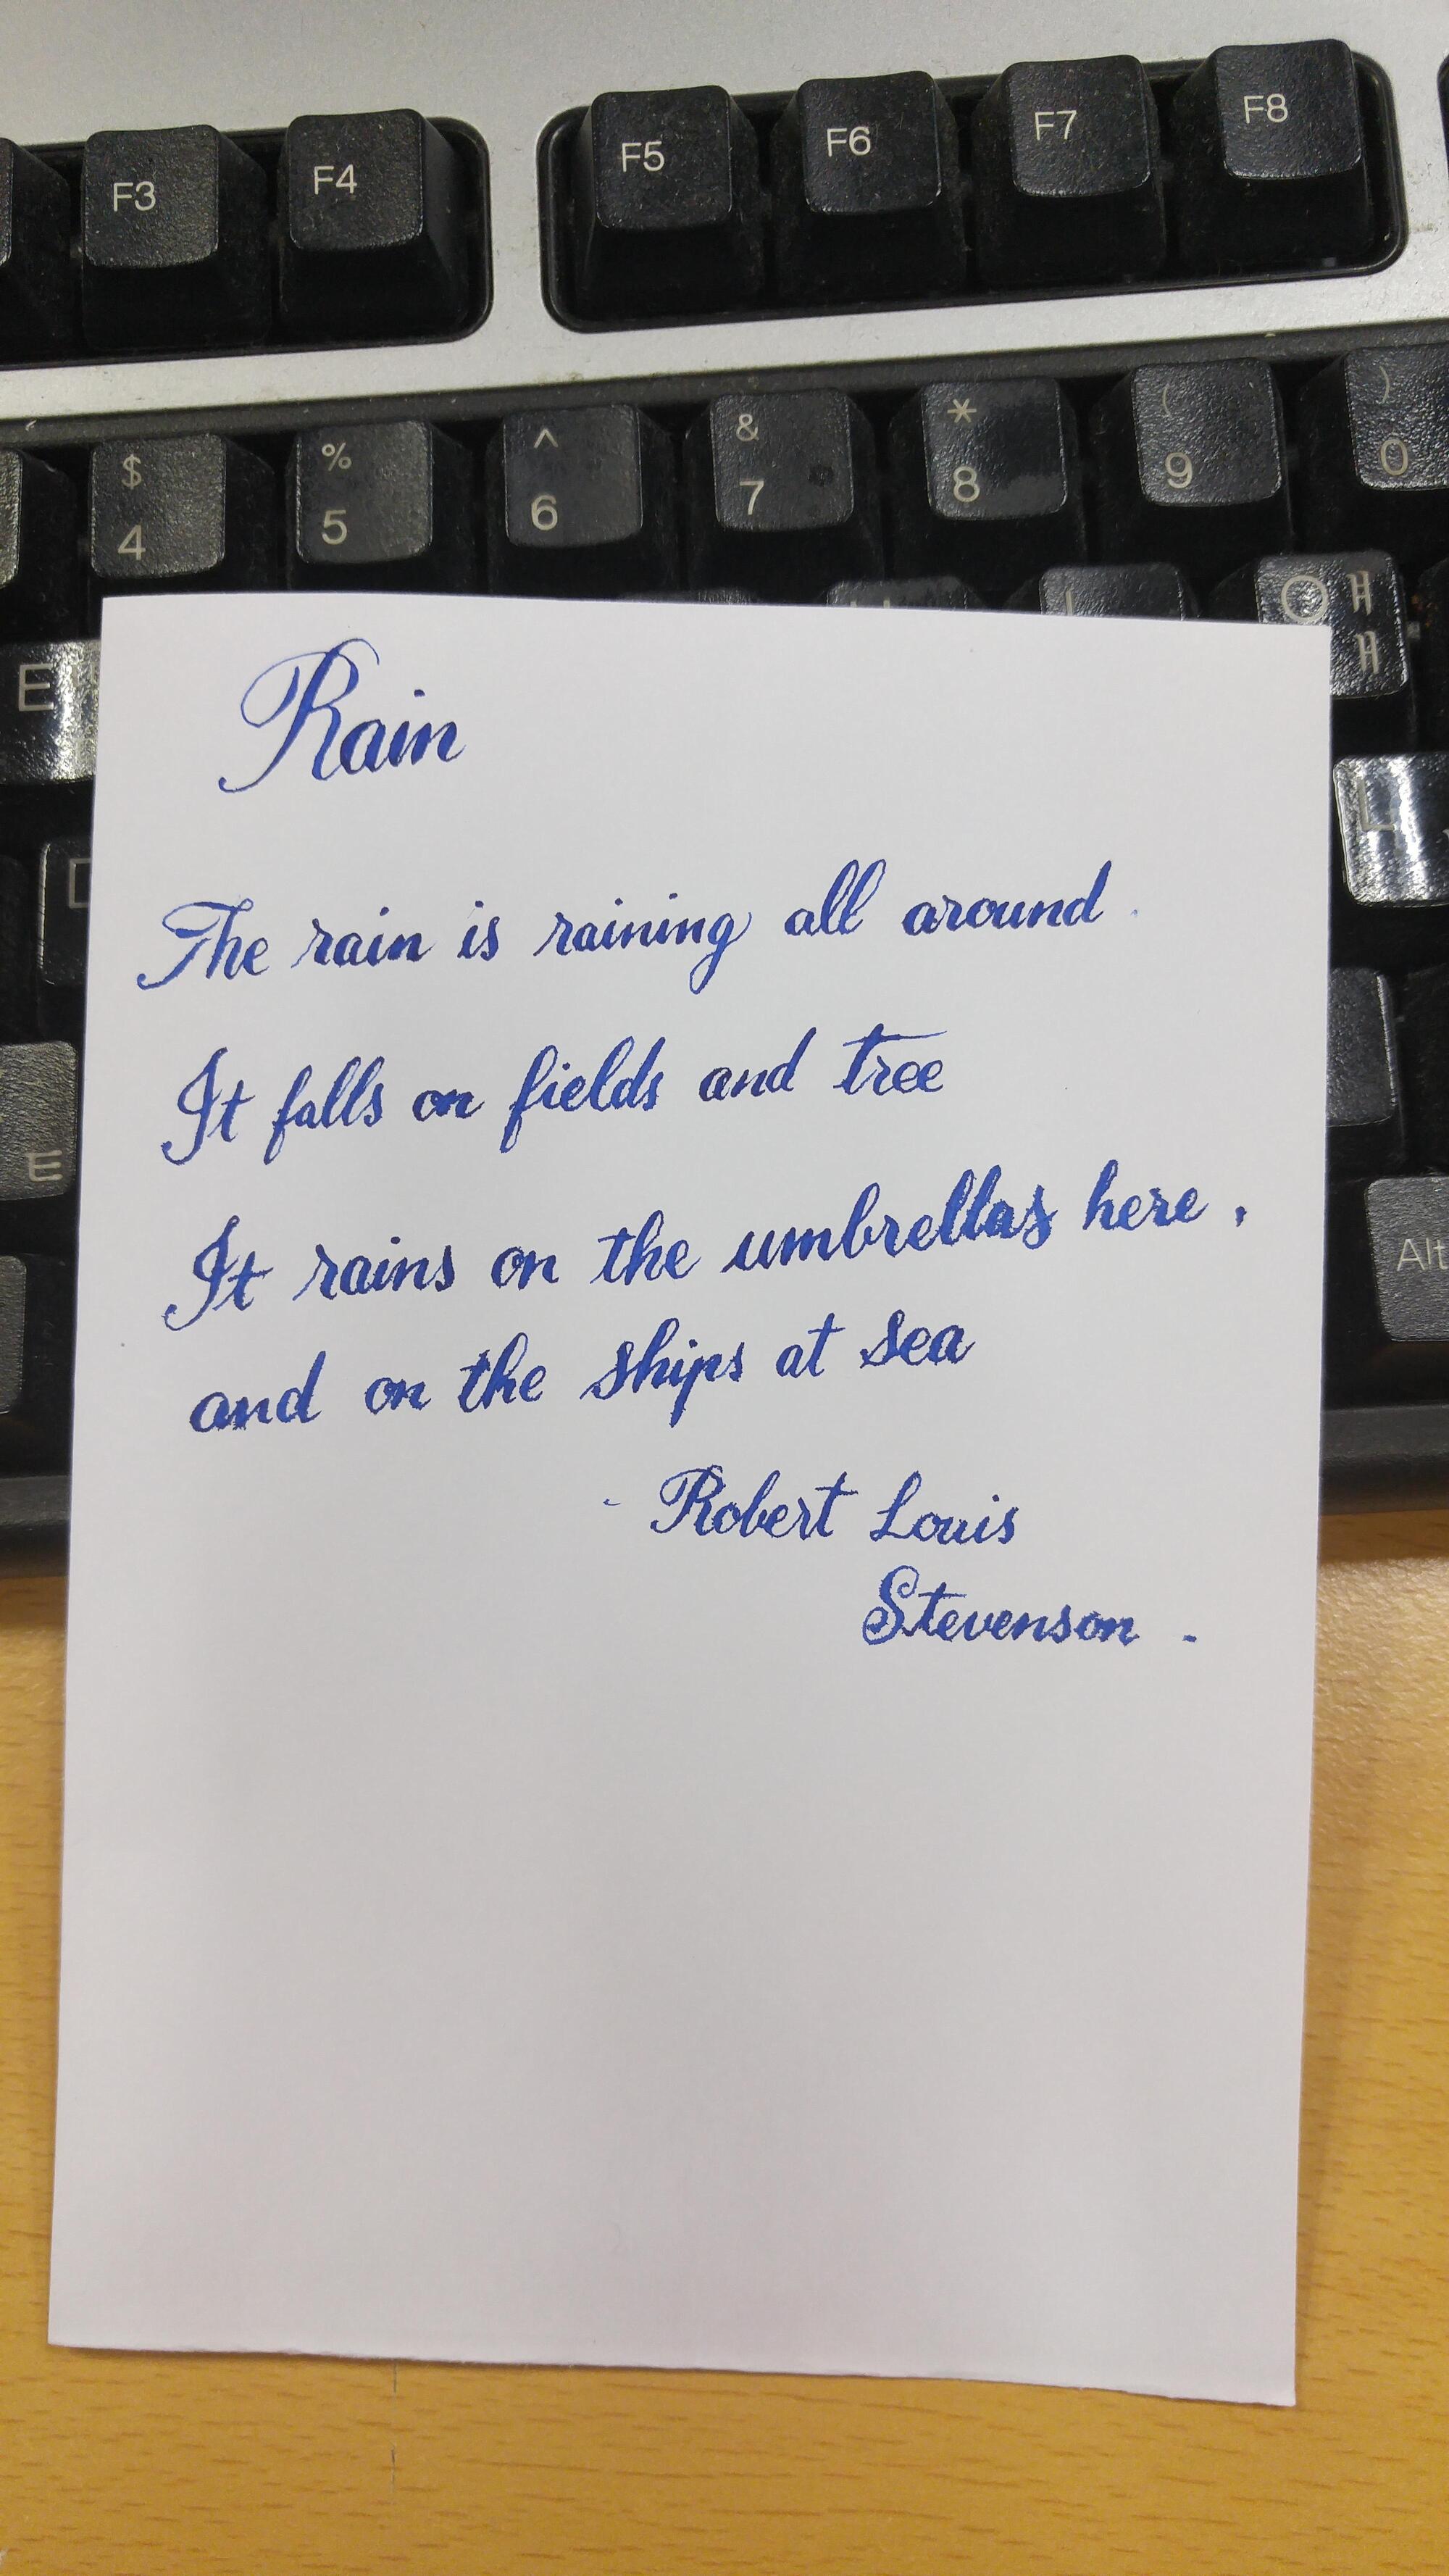 F3 F4 F5 F6 F7 F8
$ % ^ & * ( )
4 5 6 7 8 9 0
E
Rain
The rain is raining all around.
It falls on fields and tree
It rains on the umbrellas here,
and on the ships at sea
- Robert Louis
Stevenson.
L
E
Alt